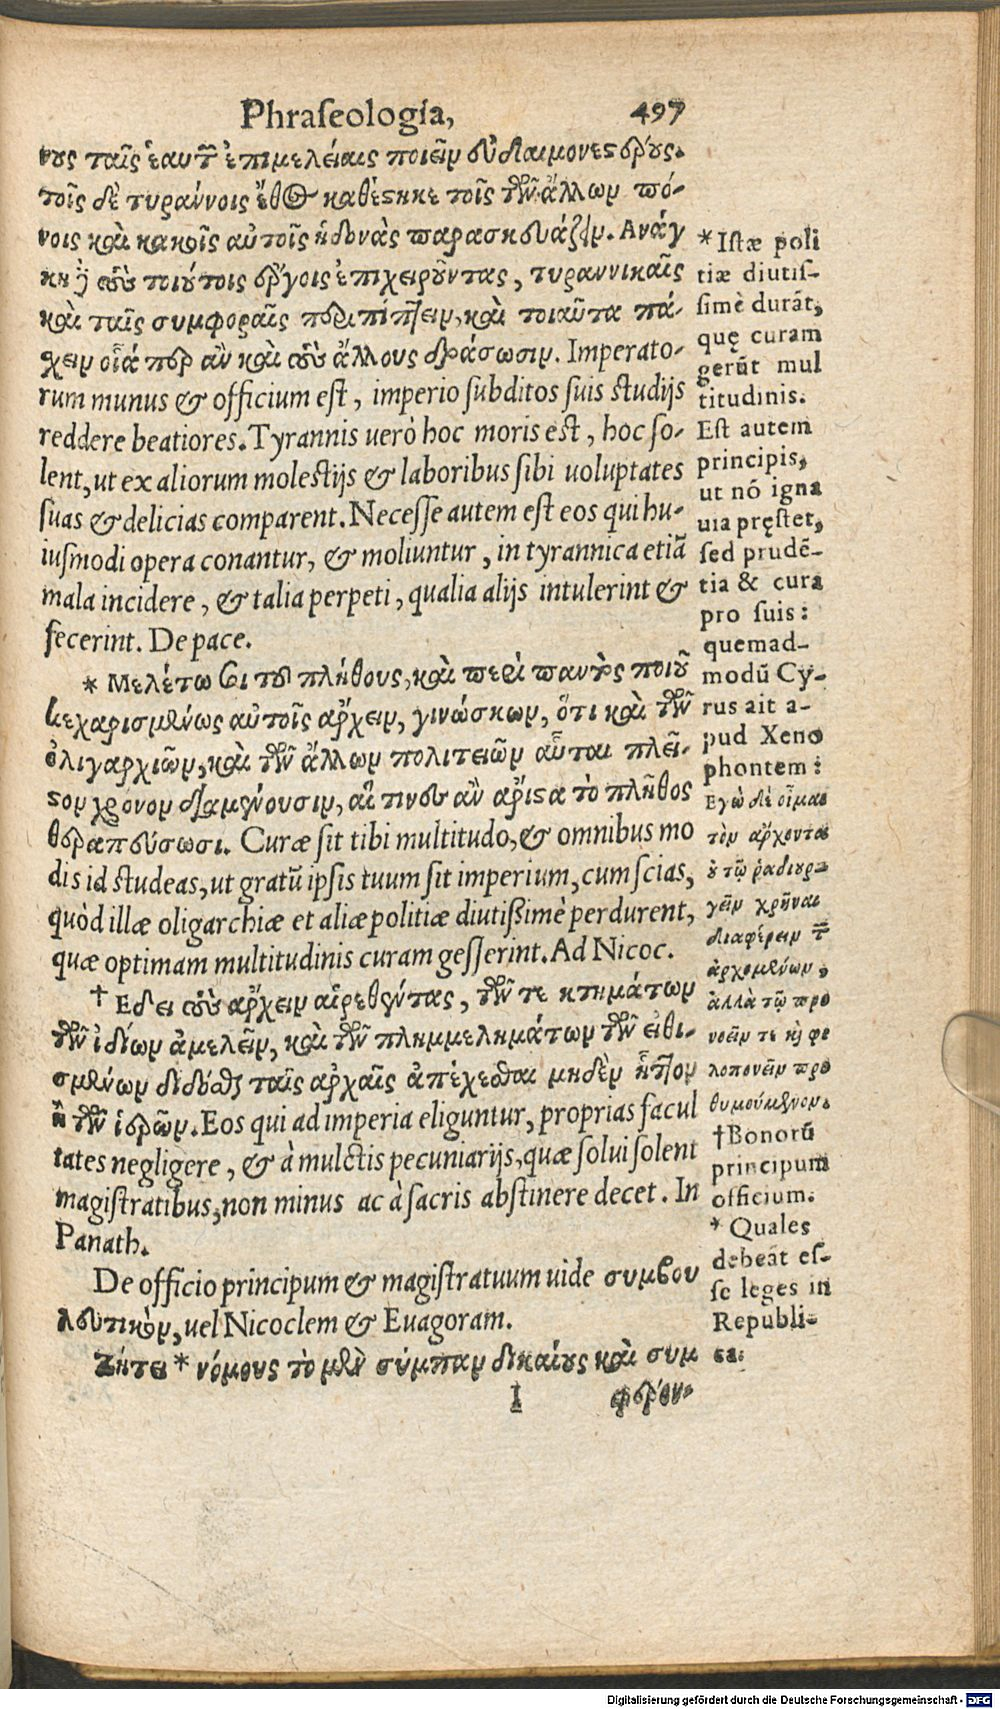 Phraſeologia, 497
νους ταῖς ἑαυτῶν ἐπιμελείαις ποιεῖν εὐδαιμονεστέρους.
τοῖς δὲ τυράννοις ἔθος καθέστηκε τοῖς τῶν ἄλλων πό-
νοις καὶ κακοῖς αὑτοῖς ἡδονὰς παρασκευάζειν. Ανάγ
κη δὲ τοὺς τοιούτοις ἔργοις ἐπιχειροῦντας, τυραννικαῖς
καὶ ταῖς συμφοραῖς περιπίπτειν, καὶ τοιαῦτα πά-
χειν οἷά περ ἂν καὶ τοὺς ἄλλους δράσωσιν. Imperato-
rum munus & officium eſt, imperio ſubditos ſuis ſtudijs
reddere beatiores. Tyrannis uerò hoc moris eſt, hoc ſo-
lent, ut ex aliorum moleſtijs & laboribus ſibi uoluptates
ſuas & delicias comparent. Neceſſe autem eſt eos qui hu-
iuſmodi opera conantur, & moliuntur, in tyrannica etiã
mala incidere, & talia perpeti, qualia alijs intulerint &
fecerint. De pace.
* Μελέτω σοι τοῦ πλήθους, καὶ περὶ παντὸς ποιοῦ
κεχαρισμένως αὐτοῖς ἄρχειν, γινώσκων, ὅτι καὶ τῶν
ὀλιγαρχιῶν, καὶ τῶν ἄλλων πολιτειῶν αὗται πλεῖ-
στον χρόνον διαμένουσιν, αἵ τινες ἂν ἄριστα τὸ πλῆθος
θεραπεύσωσι. Curæ ſit tibi multitudo, & omnibus mo
dis id ſtudeas, ut gratũ ipſis tuum ſit imperium, cum ſcias,
quòd illæ oligarchiæ et aliæ politiæ diutißimè perdurent,
quæ optimam multitudinis curam geſſerint. Ad Nicoc.
† Εδει τοὺς ἄρχειν αἱρεθέντας, τῶν τε κτημάτων
τῶν ἰδίων ἀμελεῖν, καὶ τῶν πλημμελημάτων τῶν εἰθι-
σμένων δίδοσθαι ταῖς ἀρχαῖς ἀπέχεσθαι μηδὲν ἧττον
ἢ τῶν ἱερῶν. Eos qui ad imperia eliguntur, proprias facul
tates negligere, & à mulctis pecuniarijs, quæ ſolui ſolent
magiſtratibus, non minus ac à ſacris abſtinere decet. In
Panath.
De officio principum & magiſtratuum uide συμβου
λευτικὸν, uel Nicoclem & Euagoram.
Ζήτει * νόμους τὸ μὲν σύμπαν δικαίους καὶ συμ
I φέρον-
* Iſtæ poli
tiæ diutiſ-
ſimè durãt,
quę curam
gerũt mul
titudinis.
Eſt autem
principis,
ut nõ igna
uia pręſtet,
ſed prudẽ-
tia & cura
pro ſuis:
quemad-
modũ Cy-
rus ait a-
pud Xeno
phontem:
Εγὼ δὲ οἶμαι
τὸν ἄρχοντα
οὐ τῷ ῥᾳδιουρ-
γεῖν χρῆναι
διαφέρειν τῶν
ἀρχομένων,
ἀλλὰ τῷ προ
νοεῖν τε καὶ φι
λοπονεῖν προ
θυμούμενον.
† Bonorũ
principum
officium.
* Quales
debeãt eſ-
ſe leges in
Republi-
ca.
Digitalisierung gefördert durch die Deutsche Forschungsgemeinschaft - DFG